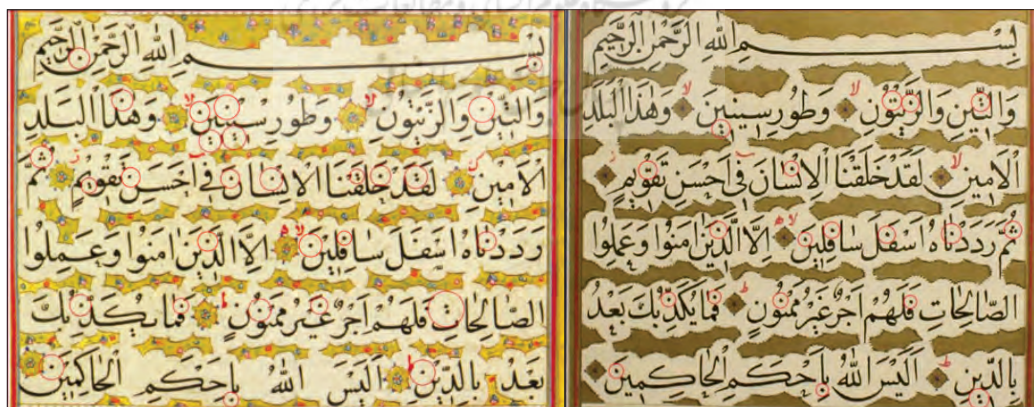 بِسْمِ اللهِ الرَّحْمٰنِ الرَّحِيمِ
وَالتِّينِ وَالزَّيْتُونِ وَطُورِ سِينِينَ وَهٰذَا الْبَلَدِ
الْاَمِينِ لَقَدْ خَلَقْنَا الْاِنْسَانَ فِي اَحْسَنِ تَقْوِيمٍ
ثُمَّ رَدَدْنَاهُ اَسْفَلَ سَافِلِينَ اِلَّا الَّذِينَ اٰمَنُوا وَعَمِلُوا
الصَّالِحَاتِ فَلَهُمْ اَجْرٌ غَيْرُ مَمْنُونٍ فَمَا يُكَذِّبُكَ بَعْدُ
بِالدِّينِ اَلَيْسَ اللهُ بِاَحْكَمِ الْحَاكِمِينَ
بِسْمِ اللهِ الرَّحْمٰنِ الرَّحِيمِ
وَالتِّينِ وَالزَّيْتُونِ وَطُورِ سِينِينَ وَهٰذَا الْبَلَدِ
الْاَمِينِ لَقَدْ خَلَقْنَا الْاِنْسَانَ فِي اَحْسَنِ تَقْوِيمٍ ثُمَّ
رَدَدْنَاهُ اَسْفَلَ سَافِلِينَ اِلَّا الَّذِينَ اٰمَنُوا وَعَمِلُوا
الصَّالِحَاتِ فَلَهُمْ اَجْرٌ غَيْرُ مَمْنُونٍ فَمَا يُكَذِّبُكَ
بَعْدُ بِالدِّينِ اَلَيْسَ اللهُ بِاَحْكَمِ الْحَاكِمِينَ